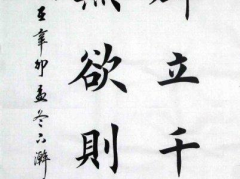 立千
無欲則
辛卯孟冬